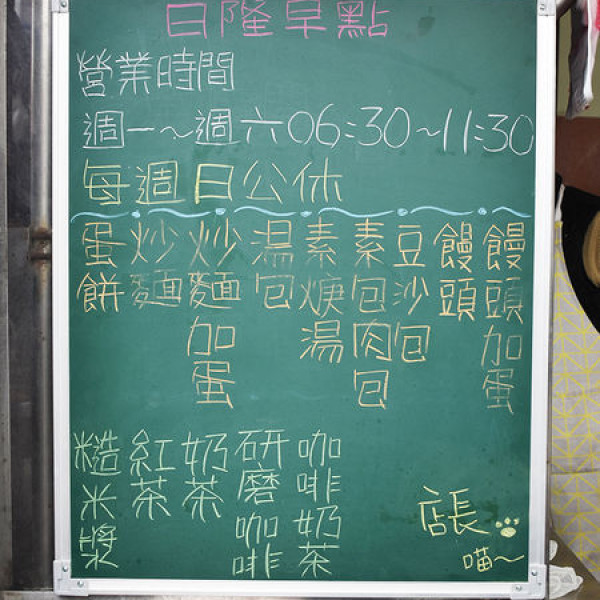 日隆早點
營業時間
週一～週六06:30～11:30
每週日公休
蛋餅
炒麵
炒麵加蛋
湯包
素焿湯
素包肉包
豆沙包
饅頭
饅頭加蛋
糙米漿
紅茶
奶茶
研磨咖啡
咖啡奶茶
店長
喵～